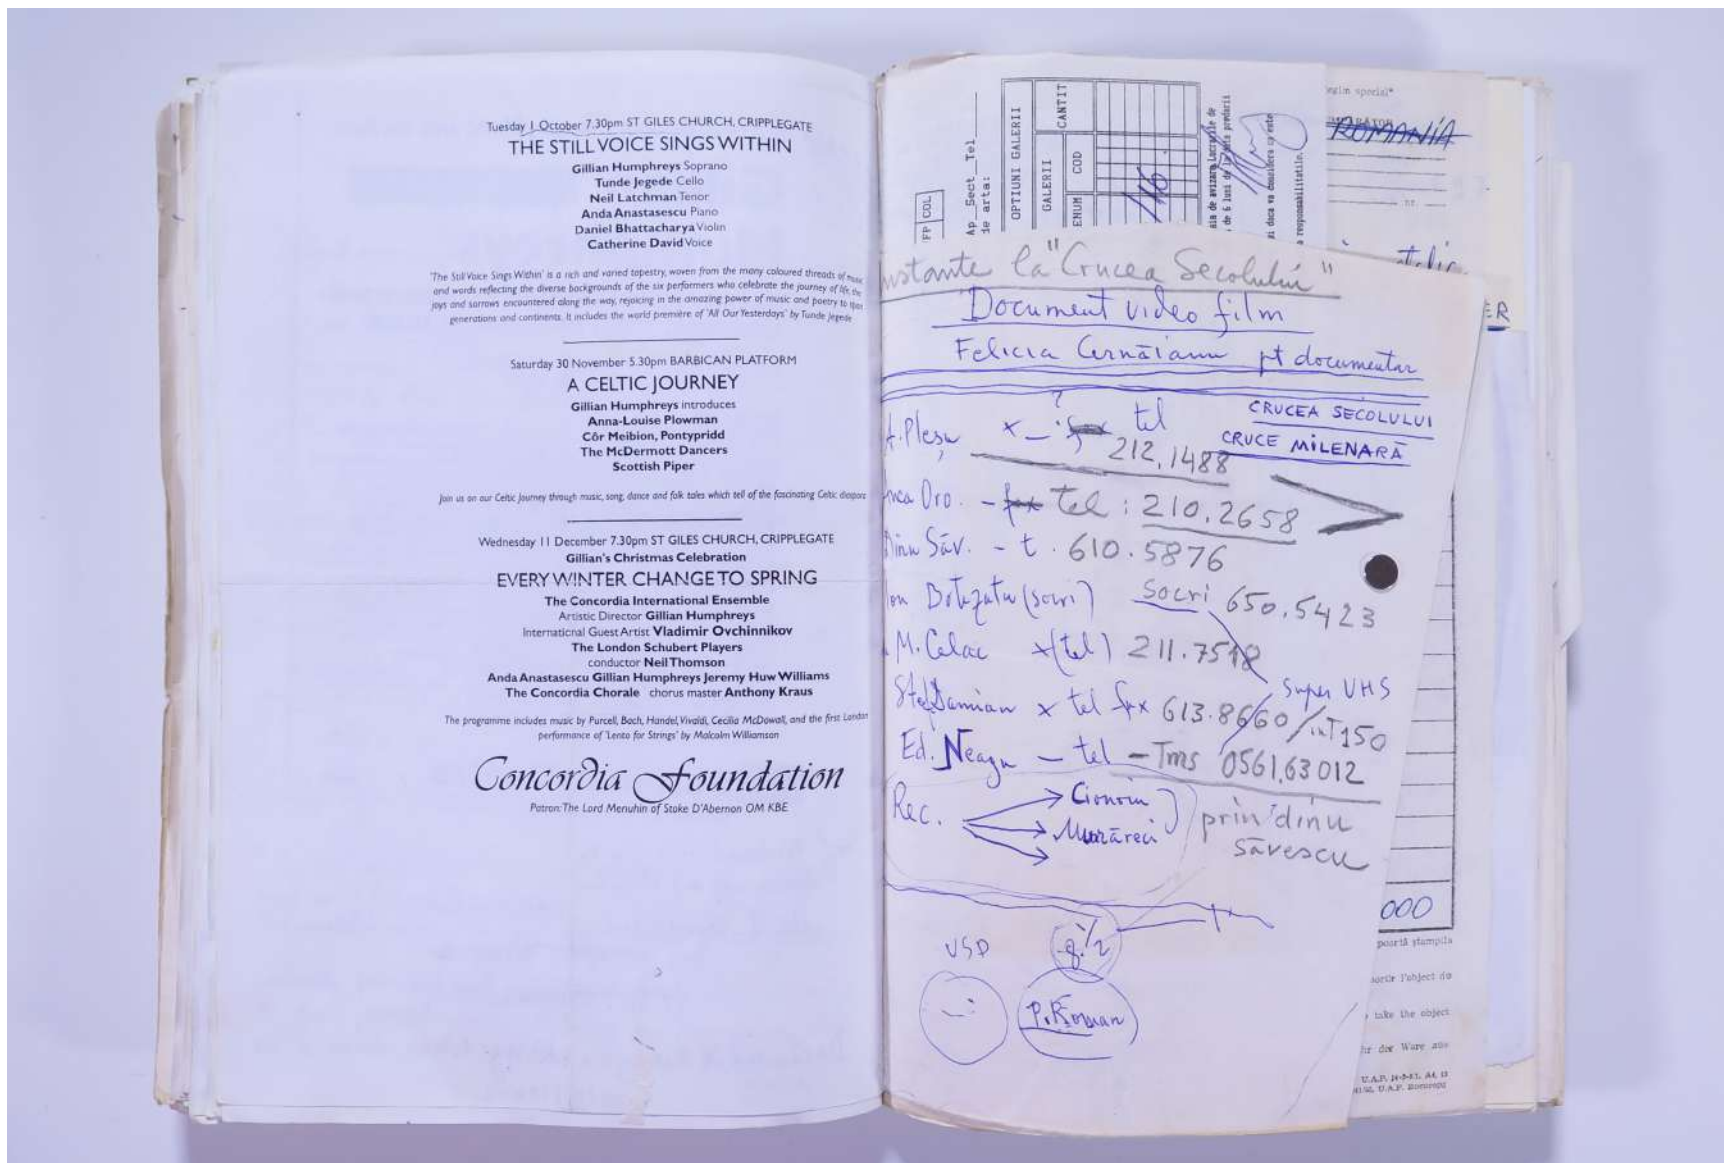 Tuesday 1 October 7.30pm ST GILES CHURCH, CRIPPLEGATE
THE STILL VOICE SINGS WITHIN
Gillian Humphreys Soprano
Tunde Jegede Cello
Neil Latchman Tenor
Anda Anastasescu Piano
Daniel Bhattacharya Violin
Catherine David Voice
'The Still Voice Sings Within' is a rich and varied tapestry, woven from the many coloured threads of music
and words reflecting the diverse backgrounds of the six performers who celebrate the journey of life, the
joys and sorrows encountered along the way, rejoicing in the amazing power of music and poetry to span
generations and continents. It includes the world première of 'All Our Yesterdays' by Tunde Jegede
Saturday 30 November 5.30pm BARBICAN PLATFORM
A CELTIC JOURNEY
Gillian Humphreys introduces
Anna-Louise Plowman
Côr Meibion, Pontypridd
The McDermott Dancers
Scottish Piper
Join us on our Celtic Journey through music, song, dance and folk tales which tell of the fascinating Celtic diaspora
Wednesday 11 December 7.30pm ST GILES CHURCH, CRIPPLEGATE
Gillian's Christmas Celebration
EVERY WINTER CHANGE TO SPRING
The Concordia International Ensemble
Artistic Director Gillian Humphreys
International Guest Artist Vladimir Ovchinnikov
The London Schubert Players
conductor Neil Thomson
Anda Anastasescu Gillian Humphreys Jeremy Huw Williams
The Concordia Chorale chorus master Anthony Kraus
The programme includes music by Purcell, Bach, Handel, Vivaldi, Cecilia McDowall, and the first London
performance of 'Lento for Strings' by Malcolm Williamson
Concordia Foundation
Patron: The Lord Menuhin of Stoke D'Abernon OM KBE
FP COL
Ap Sect Tel
de arta:
OPTIUNI GALERII
GALERII CANTIT
ENUM COD
116
de 6 luni de la data predarii
responsabilitatie.
regim special"
ROMANIA
nr.
ER
la "Crucea Secolului"
Document video film
Felicia Cernăianu pt documentar
CRUCEA SECOLULUI
CRUCE MILENARĂ
A. Pleșu x - ? tel
212.1488
Oro. - fax tel : 210.2658
Dinu Săv. - t. 610.5876
Botezatu (socri) Socri 650.5423
M. Celac x (tel) 211.7518
Damian x tel fax 613.8660 / int 150
Super VHS
Ed. Neagu - tel - Tms 0561.63012
Rec.
prin dinu
săvescu
USD
P. Roman
000
poartă ştampila
l'object de
take the object
der Ware aus